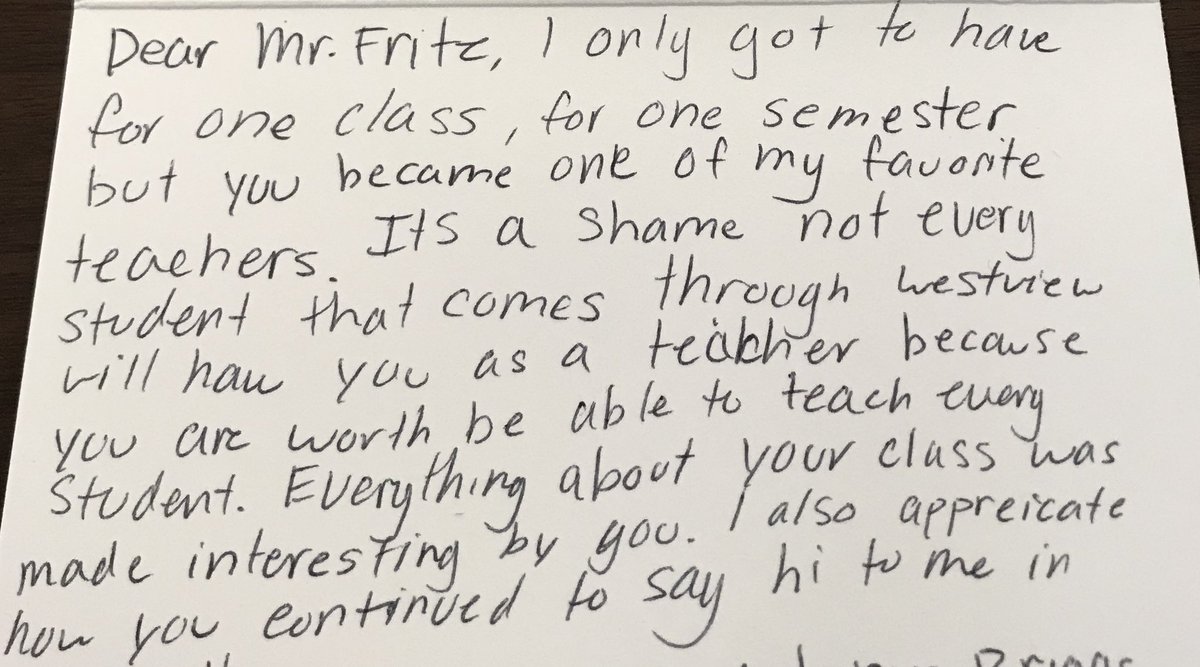 Dear Mr. Fritz, I only got to have
for one class, for one semester
but you became one of my favorite
teachers. Its a shame not every
student that comes through westview
will have you as a teacher because
you are worth be able to teach every
student. Everything about your class was
made interesting by you. I also appreicate
how you continued to say hi to me in